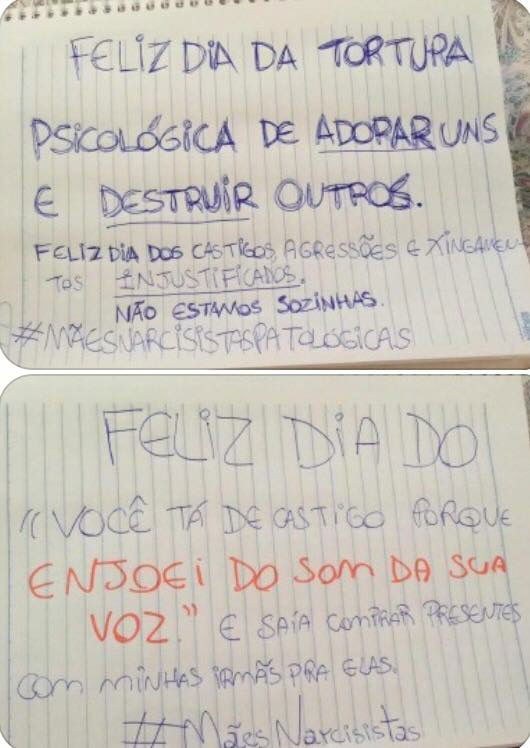 FELIZ DIA DA TORTURA
PSICOLÓGICA DE ADORAR UNS
E DESTRUIR OUTROS.
FELIZ DIA DOS CASTIGOS, AGRESSÕES E XINGAMEN
TOS INJUSTIFICADOS.
NÃO ESTAMOS SOZINHAS.
#MÃESNARCISISTASPATOLÓGICAS
FELIZ DIA DO
"VOCÊ TÁ DE CASTIGO PORQUE
ENJOEI DO SOM DA SUA
VOZ." E SAÍA COMPRAR PRESENTES
COM MINHAS IRMÃS PRA ELAS.
#MãesNarcisistas